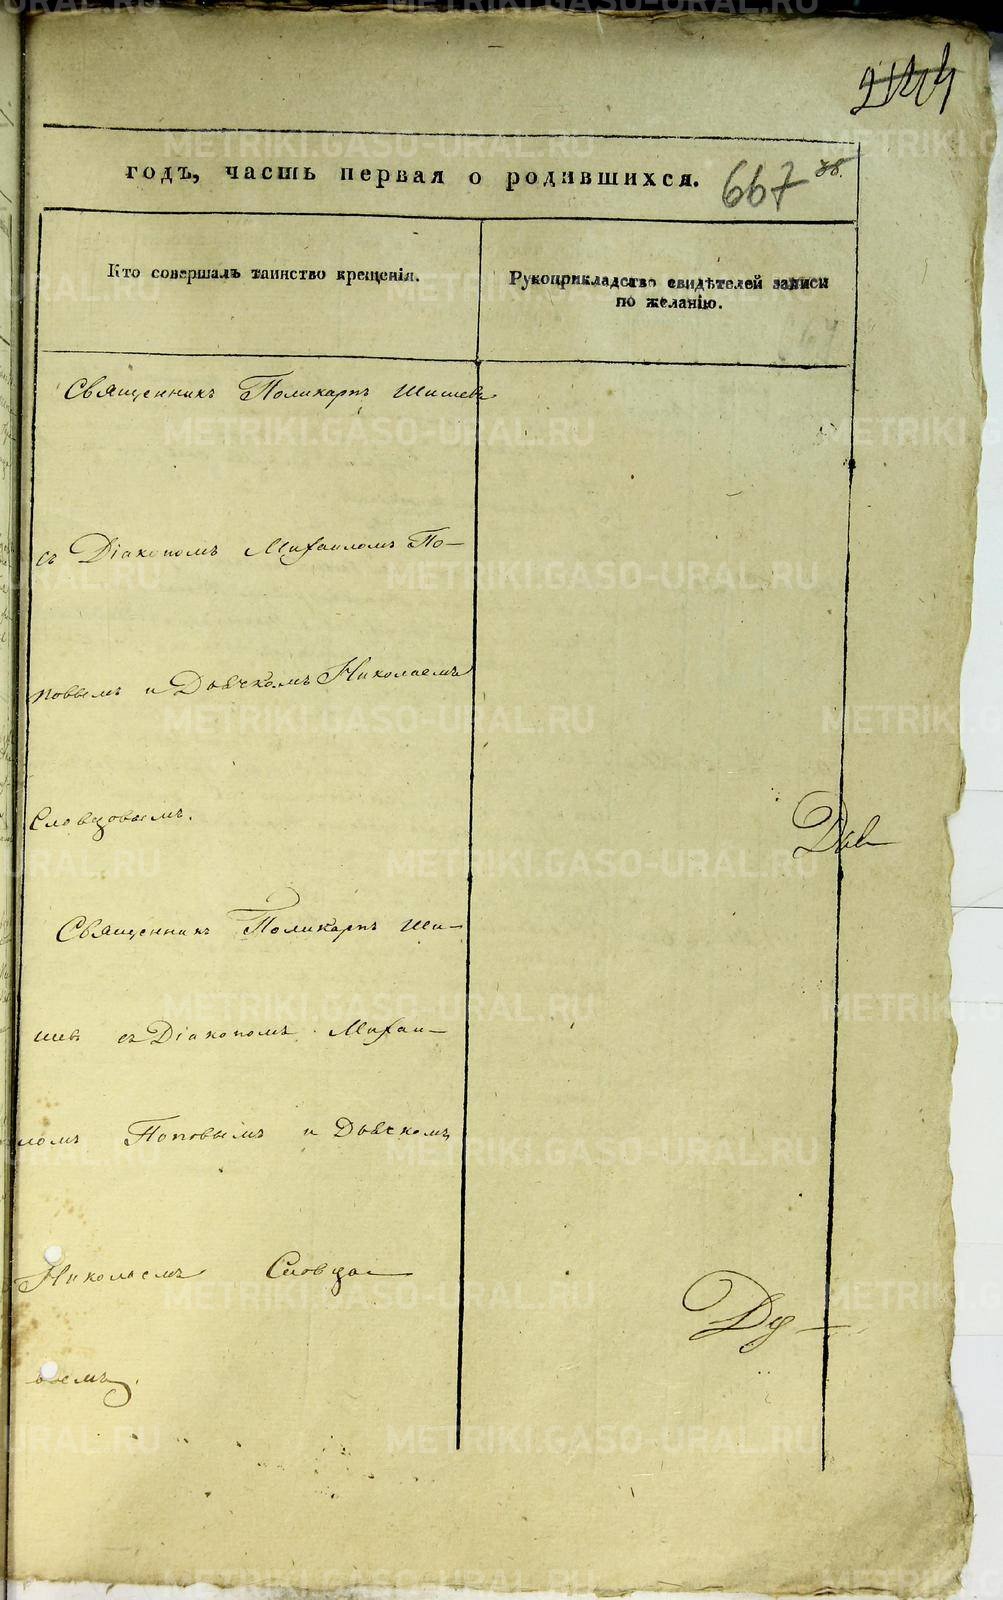 годъ, часть первая о родившихся. 667
Кто совершалъ таинство крещенія.
Рукоприкладство свидѣтелей записи
по желанію.
Священникъ Поликарпъ Шишевъ
съ Діакономъ Михаиломъ По—
повымъ и Дьячкомъ Николаемъ
Словцовымъ.
Священникъ Поликарпъ Ши—
шевъ съ Діакономъ Михаи—
ломъ Поповымъ и Дьячкомъ
Николаемъ Словцо—
вымъ.
METRIKI.GASO-URAL.RU